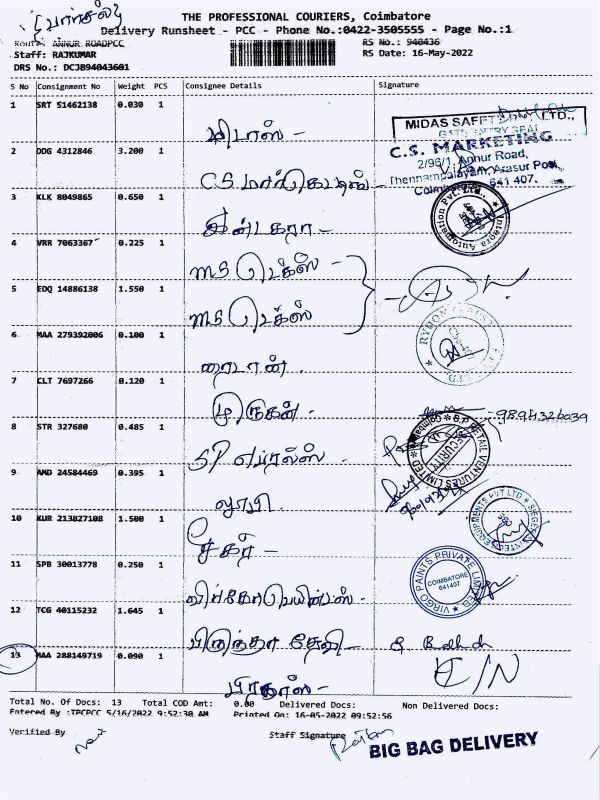 (பார்சல்)
THE PROFESSIONAL COURIERS, Coimbatore
Delivery Runsheet - PCC - Phone No.:0422-3505555 - Page No.:1
Route: ANNUR ROADPCC RS No.: 940436
Staff: RAJKUMAR RS Date: 16-May-2022
DRS No.: DCJ894043601
S No Consignment No Weight PCS Consignee Details Signature
1 SRT 51462138 0.030 1
மிடாஸ் -
MIDAS SAFETY LTD.,
GATE ENTRY SEAL
2 DDG 4312846 3.200 1
C.S. மார்கெட்டிங் -
C.S. MARKETING
2/96/1, Annur Road,
Chennampalayam, Arasur Post,
Coimbatore 641 407.
3 KLK 8049865 0.650 1
இன்டகரா -
Integra Automation Pvt. Ltd.,
4 VRR 7063367 0.225 1
MS டெக்ஸ் -
5 EDQ 14886138 1.550 1
MS டெக்ஸ்
6 MAA 279392006 0.100 1
ரைடான்.
7 CLT 7697266 0.120 1
முருகன் -
8 STR 327680 0.485 1
S.P
S.P RETAIL VENTURES LIMITED
SECURITY
9 AMD 24584469 0.395 1
10 KUR 213827108 1.500 1
சேகர் -
EQUIPMENTS PVT LTD
11 SPB 30013778 0.250 1
விர்கோ பெயின்டஸ் -
VIRGO PAINTS PRIVATE LIMITED
COIMBATORE
641407
12 TCG 40115232 1.645 1
பிருந்தா தேவி -
13 MAA 288149719 0.090 1
பிரகாஸ் -
Total No. Of Docs: 13 Total COD Amt: 0.00 Delivered Docs: Non Delivered Docs:
Entered By :TPCPCC 5/16/2022 9:52:30 AM Printed On: 16-05-2022 09:52:56
Verified By Staff Signature
BIG BAG DELIVERY